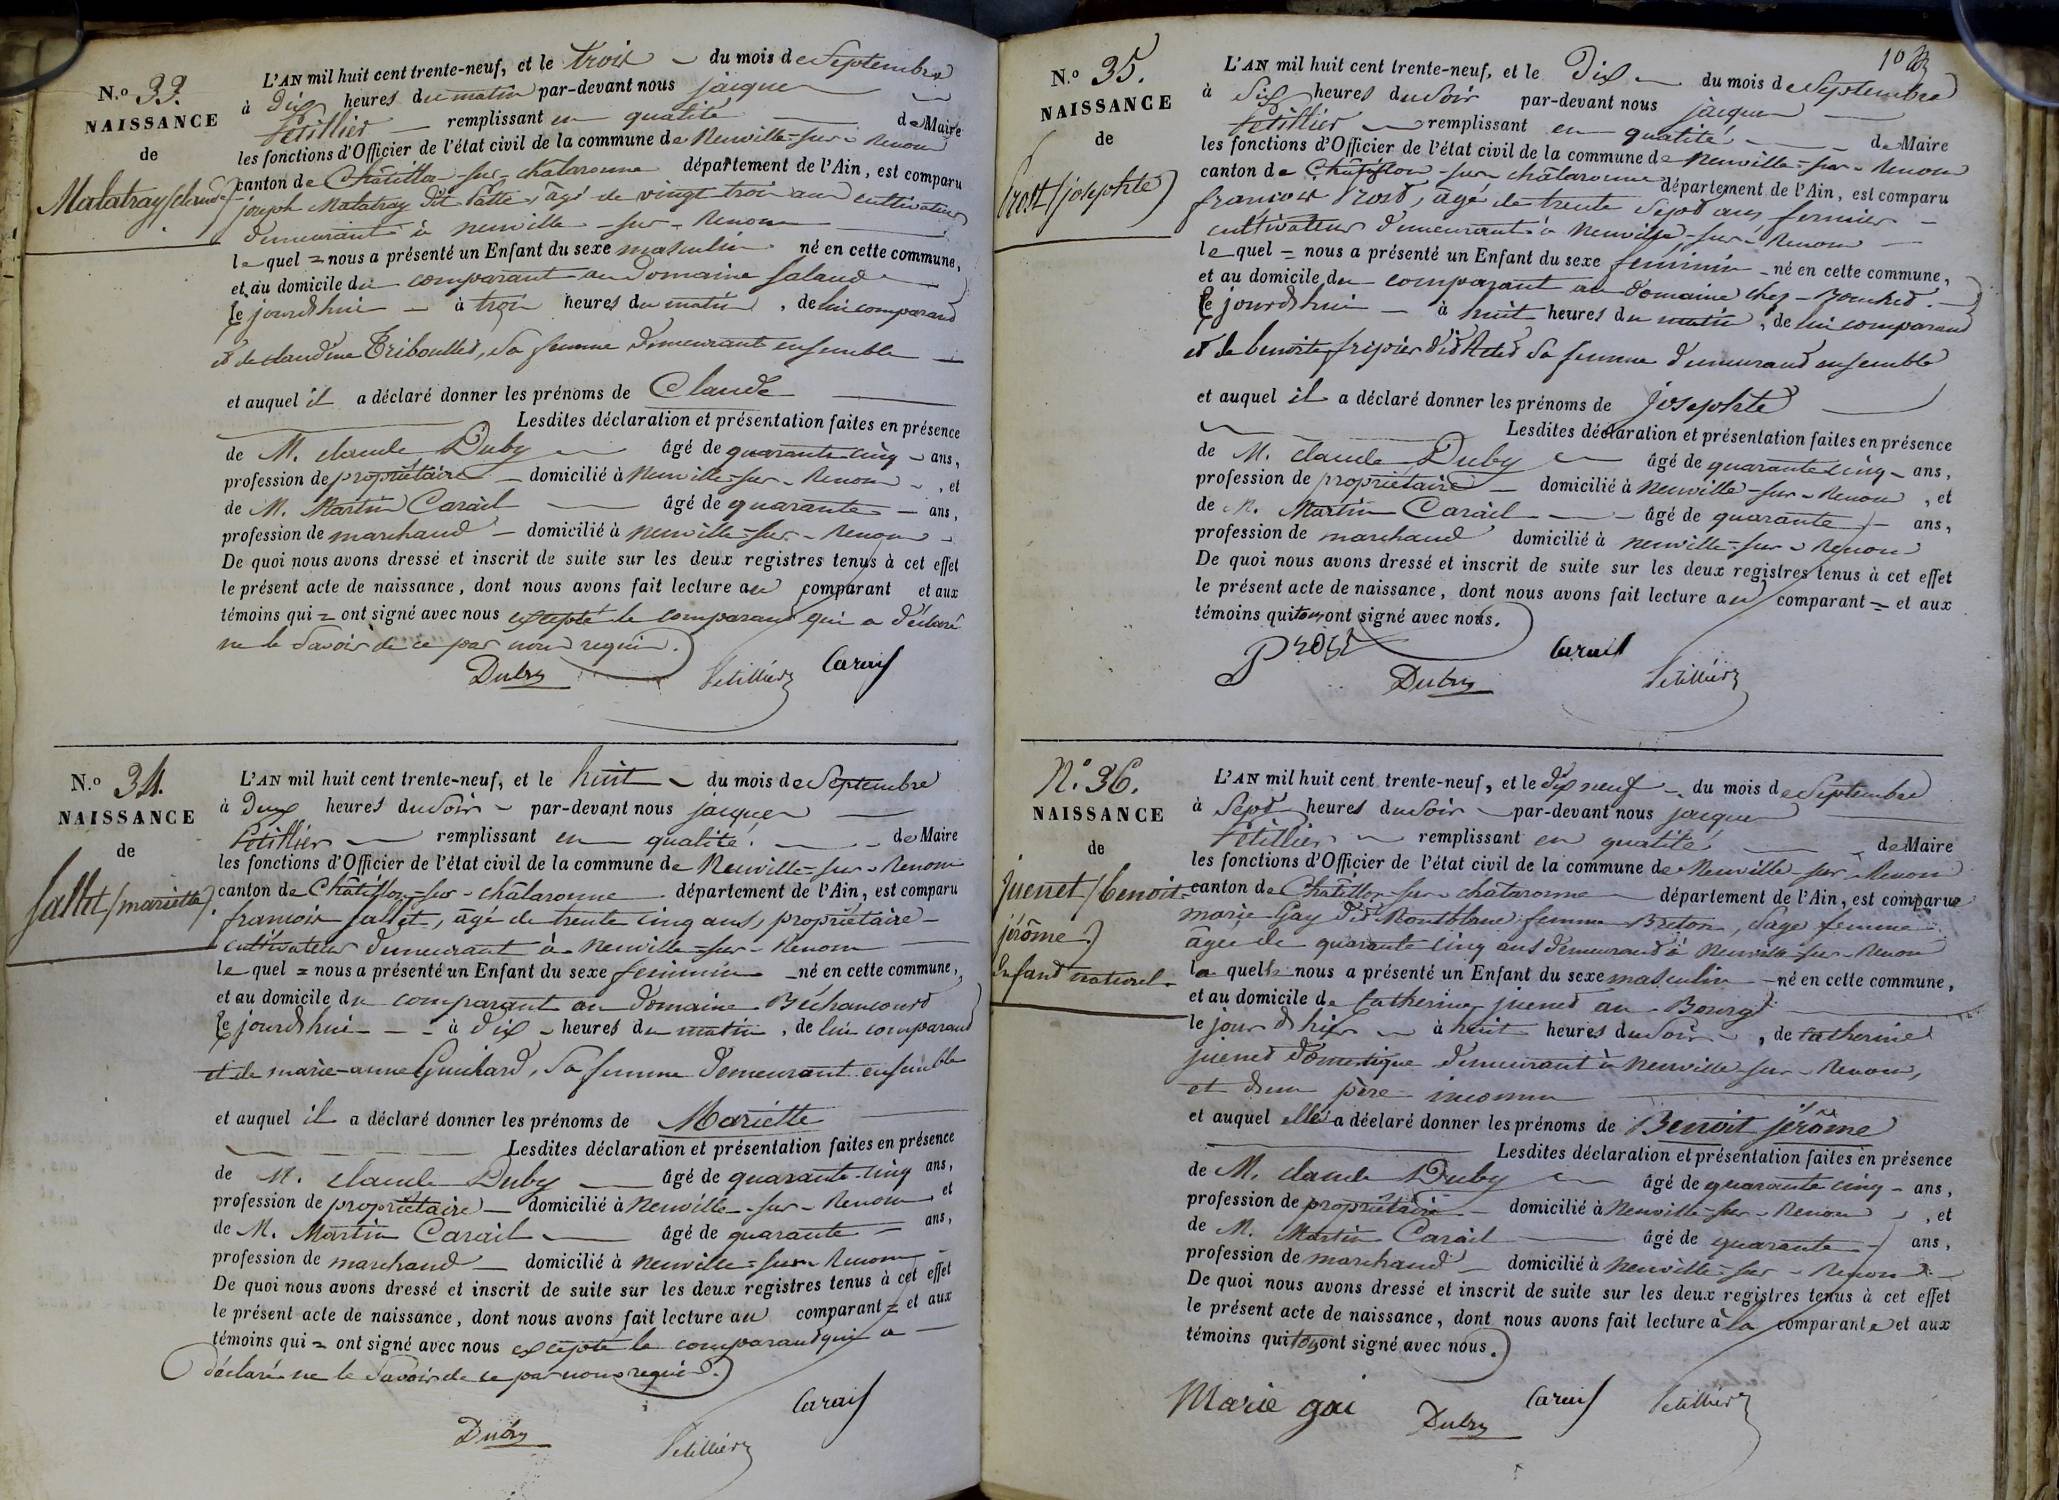 N.o 33.
NAISSANCE
de
Malatray (claude)
L'AN mil huit cent trente-neuf, et le trois du mois de Septembre
à dix heures du matin par-devant nous jacques
Petillier remplissant en qualité de Maire
les fonctions d'Officier de l'état civil de la commune de Neuville-sur-Renom
canton de Châtillon-sur-chalaronne département de l'Ain, est comparu
joseph Malatray dit Patte, âgé de vingt trois ans cultivateur
demeurant à neuville-sur-Renom
lequel = nous a présenté un Enfant du sexe masculin né en cette commune,
et au domicile du comparant au domaine Saland
le jourdhui à trois heures du matin, de lui comparand
et de claudine Triboullet, sa femme demeurant ensemble
et auquel il a déclaré donner les prénoms de Claude
Lesdites déclaration et présentation faites en présence
de M. claude Duby âgé de quarante-cinq ans,
profession de propriétaire domicilié à Neuville-sur-Renom, et
de M. Martin Carail âgé de quarante ans,
profession de marchand domicilié à neuville-sur-Renom
De quoi nous avons dressé et inscrit de suite sur les deux registres tenus à cet effet
le présent acte de naissance, dont nous avons fait lecture au comparant et aux
témoins qui = ont signé avec nous excepté le comparant qui a déclaré
ne le savoir de ce par nous requis.
Duby Petillier Carail
N.o 34.
NAISSANCE
de
fallet (mariette)
L'AN mil huit cent trente-neuf, et le huit du mois de Septembre
à deux heures du soir par-devant nous jacques
Petillier remplissant en qualité de Maire
les fonctions d'Officier de l'état civil de la commune de Neuville-sur-Renom
canton de Châtillon-sur-chalaronne département de l'Ain, est comparu
francois fallet, âgé de trente cinq ans, propriétaire
cultivateur demeurant à Neuville-sur-Renom
lequel = nous a présenté un Enfant du sexe feminin né en cette commune,
et au domicile du comparant au domaine Béchancourt
le jourdhui à dix heures du matin, de lui comparand
et de marie-anne Guichard, sa femme demeurant ensemble
et auquel il a déclaré donner les prénoms de Mariette
Lesdites déclaration et présentation faites en présence
de M. claude Duby âgé de quarante-cinq ans,
profession de propriétaire domicilié à Neuville-sur-Renom et
de M. Martin Carail âgé de quarante ans,
profession de marchand domicilié à neuville-sur-Renom
De quoi nous avons dressé et inscrit de suite sur les deux registres tenus à cet effet
le présent acte de naissance, dont nous avons fait lecture au comparant = et aux
témoins qui = ont signé avec nous excepté le comparand qui a
déclaré ne le savoir de ce par nous requis.
Duby Petillier Carail
10
N.o 35.
NAISSANCE
de
Prost (josephte)
L'AN mil huit cent trente-neuf, et le Dix du mois de Septembre
à six heures du soir par-devant nous jacques
Petillier remplissant en qualité de Maire
les fonctions d'Officier de l'état civil de la commune de Neuville-sur-Renom
canton de Châtillon-sur-chalaronne département de l'Ain, est comparu
francois Prost, âgé de trente sept ans fermier
cultivateur demeurant à Neuville-sur-Renom
lequel = nous a présenté un Enfant du sexe feminin né en cette commune,
et au domicile du comparant au domaine chez-Bouchet.
le jourdhui à huit heures du matin, de lui comparand
et de benoite fripier dit sa femme demeurand ensemble
et auquel il a déclaré donner les prénoms de Josephte
Lesdites déclaration et présentation faites en présence
de M. claude Duby âgé de quarante cinq ans,
profession de propriétaire domicilié à Neuville-sur-Renom, et
de M. Martin Carail âgé de quarante ans,
profession de marchand domicilié à neuville-sur-Renom
De quoi nous avons dressé et inscrit de suite sur les deux registres tenus à cet effet
le présent acte de naissance, dont nous avons fait lecture au comparant = et aux
témoins qui tous ont signé avec nous.
Prost Duby Carail Petillier
N.o 36.
NAISSANCE
de
juenet (benoit
jérôme)
Enfant naturel
L'AN mil huit cent trente-neuf, et le dix neuf du mois de Septembre
à Sept heures du soir par-devant nous jacques
Petillier remplissant en qualité de Maire
les fonctions d'Officier de l'état civil de la commune de Neuville-sur-Renom
canton de Châtillon-sur-chalaronne département de l'Ain, est comparue
marie Gay dit Montblanc femme Breton, sage femme
âgée de quarante cinq ans demeurand à Neuville-sur-Renom
laquelle nous a présenté un Enfant du sexe masculin né en cette commune,
et au domicile de Catherine juenet au Bourg
le jour d'hier à huit heures du soir, de catherine
juenet domestique demeurant à Neuville-sur-Renom,
et d'un père inconnu
et auquel elle a déclaré donner les prénoms de Benoit jérôme
Lesdites déclaration et présentation faites en présence
de M. claude Duby âgé de quarante cinq ans,
profession de propriétaire domicilié à Neuville-sur-Renom, et
de M. Martin Carail âgé de quarante ans,
profession de marchand domicilié à Neuville-sur-Renom
De quoi nous avons dressé et inscrit de suite sur les deux registres tenus à cet effet
le présent acte de naissance, dont nous avons fait lecture à la comparante et aux
témoins qui tous ont signé avec nous.
Marie gai Duby Carail Petillier